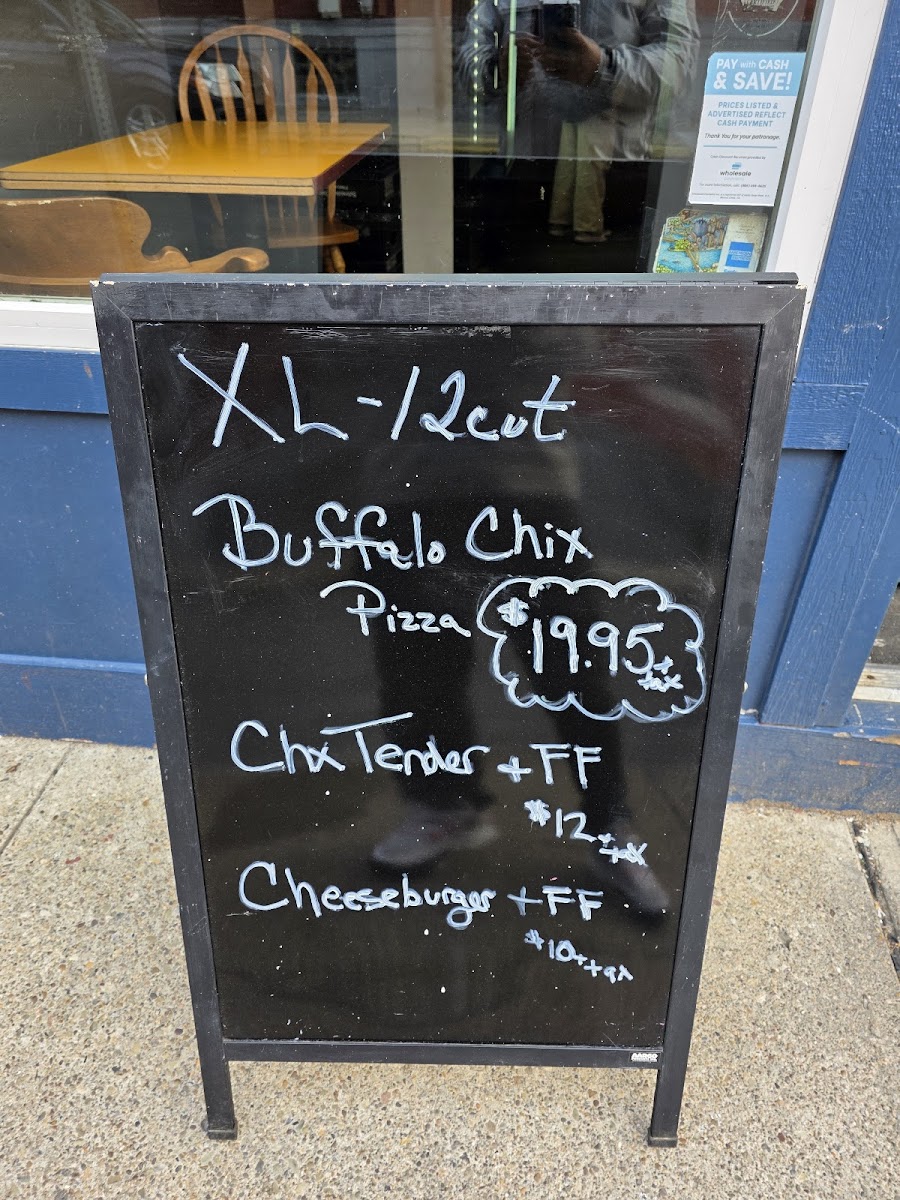 PAY with CASH
& SAVE!
PRICES LISTED &
ADVERTISED REFLECT
CASH PAYMENT
Thank You for your patronage.
wholesale
XL - 12 cut
Buffalo Chix
Pizza $19.95 + tax
Chx Tender + FF
$12 + tax
Cheeseburger + FF
$10 + tax